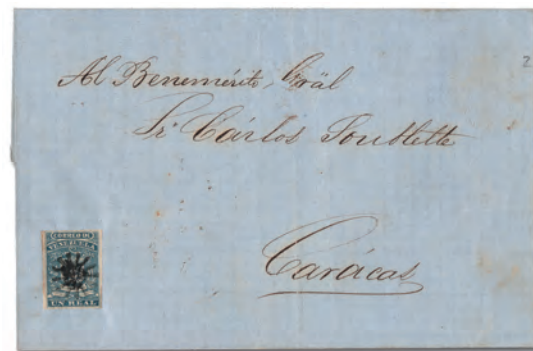 Al Benemérito, Gräl
Sr Cárlos Soublette
Carácas
2
CORREO DE
VENEZUELA
UN REAL